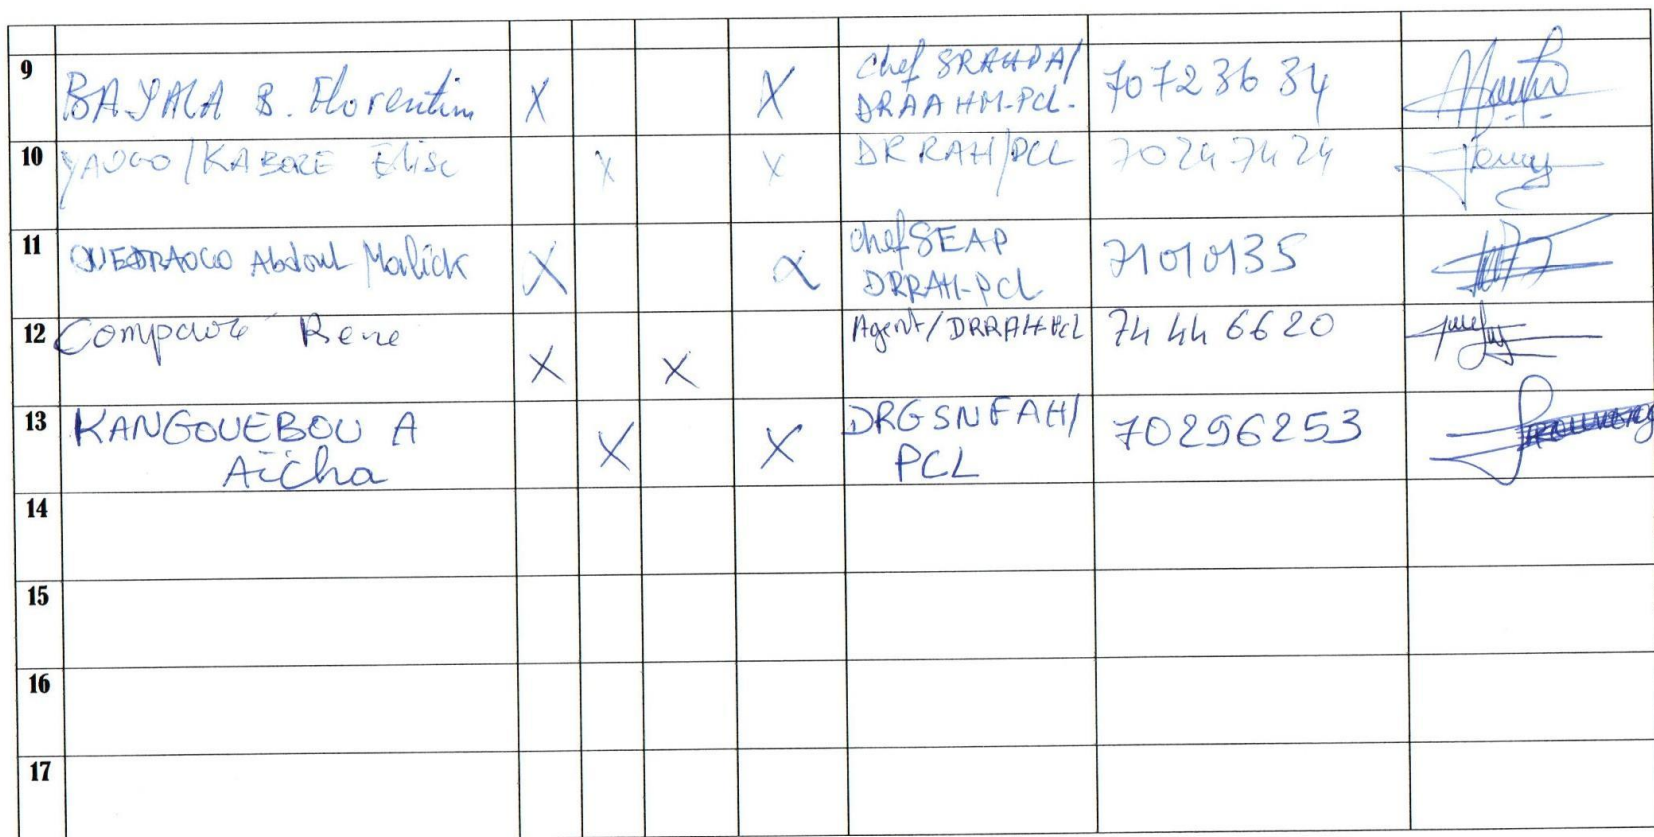 9 BAYALA B. Florentin X X Chef SRAHPA/
DRAAHM-PCL. 70723634
10 YAOGO/KABORE Elise X X DRRAH/PCL 70247424
11 OUEDRAOGO Abdoul Malick X X chef SEAP
DRRAH-PCL 71010135
12 Compaoré Rene X X Agent/DRRAH-PCL 74 44 6620
13 KANGOUEBOU A
Aïcha X X DRGSNFAH/
PCL 70296253
14
15
16
17